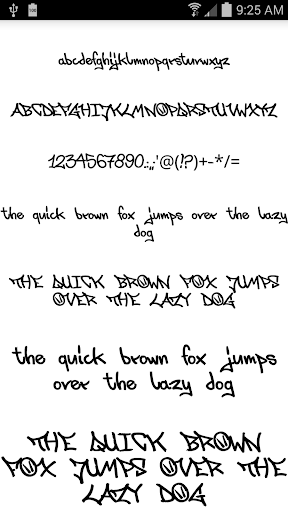 100
9:25 AM
abcdefghijklmnopqrstuvwxyz
ABCDEFGHIJKLMNOPQRSTUVWXYZ
1234567890.:,;'@(!?)+-*/=
the quick brown fox jumps over the lazy
dog
THE QUICK BROWN FOX JUMPS
OVER THE LAZY DOG
the quick brown fox jumps
over the lazy dog
THE QUICK BROWN
FOX JUMPS OVER THE
LAZY DOG